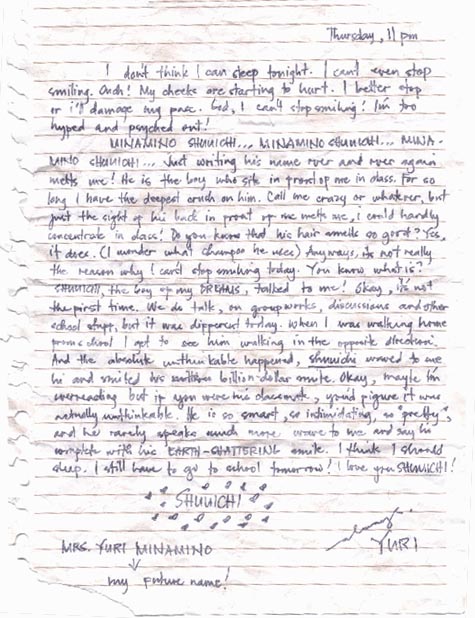 Thursday, 11 pm
I don't think I can sleep tonight. I can't even stop
smiling. Ouch! My cheeks are starting to hurt. I better stop
or i'll damage my face. God, I can't stop smiling! I'm too
hyped and psyched out!
MINAMINO SHUUICHI... MINAMINO SHUUICHI... MINA-
MINO SHUUICHI... Just writing his name over and over again
melts me! He is the boy who sits in front of me in class. For so
long I have the deepest crush on him. Call me crazy or whatever, but
just the sight of his back in front of me melts me, i could hardly
concentrate in class! Do you know that his hair smells so good? Yes,
it does. (I wonder what shampoo he uses) Anyways, its not really
the reason why I can't stop smiling today. You know what is?
SHUUICHI, the boy of my DREAMS, talked to me! Okay, it's not
the first time. We do talk, on groupworks, discussions and other
school stuff, but it was different today. When I was walking home
from school I got to see him walking in the opposite direction.
And the absolute unthinkable happened, shuuichi waved to me
hi and smiled his billion-dollar smile. Okay, maybe I'm
overreading but if you were his classmate, you'd figure it was
actually unthinkable. He is so smart, so intimidating, so "pretty",
and he rarely speaks much more wave to me and say hi
complete with his EARTH-SHATTERING smile. I think I should
sleep. I still have to go to school tomorrow! I love you SHUUICHI!
SHUUICHI
MRS. YURI MINAMINO
YURI
my future name!